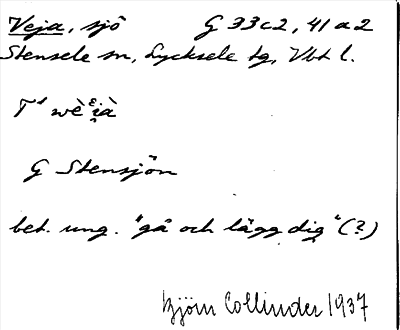 Veja, sjö G 33c2, 41a2
Stensele sn, Lycksele tg, Vbt l.
G Stensjön
bet. ung. "gå och lägg dig" (?)
Björn Collinder 1937